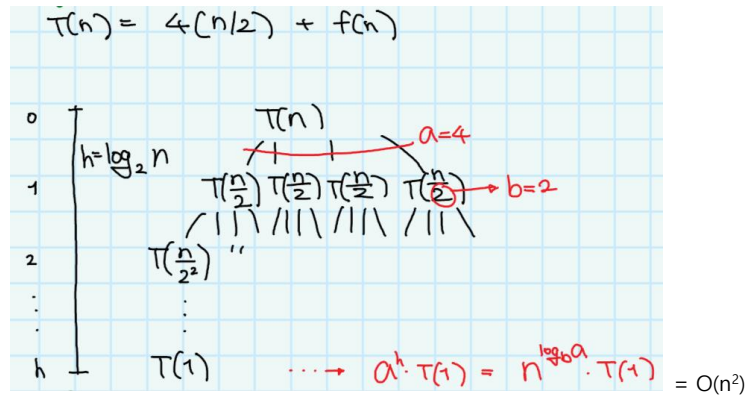 T(n) = 4(n/2) + f(n)
0 T(n)
a=4
h=log₂n
1 T(n/2) T(n/2) T(n/2) T(n/2) → b=2
2 T(n/2²) "
⋮ ⋮
h T(1) ····→ aʰ·T(1) = n^(log_b a)·T(1) = O(n²)